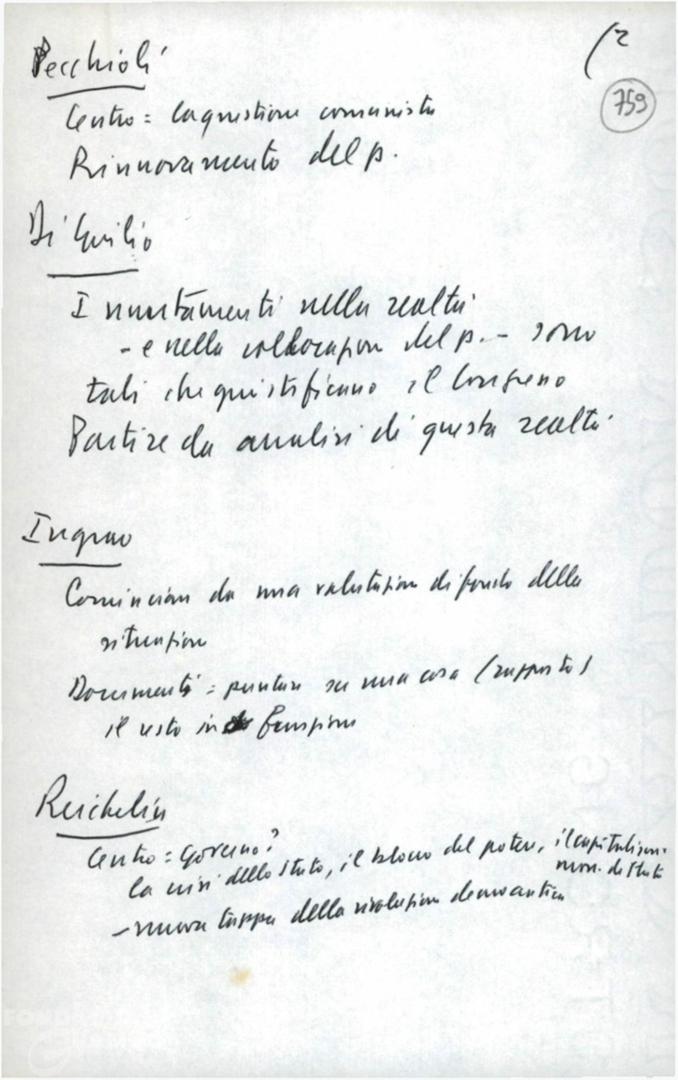 (2
759
Pecchioli
Centro = la questione comunista
Rinnovamento del p.
Di Giulio
I mutamenti nella realtà
- e nella collocazione del p. - sono
tali che giustificano il Congresso
Partire da analisi di questa realtà
Ingrao
Cominciare da una valutazione di fondo della
situazione
Documenti = puntare su una cosa (rapporto)
il resto in funzione
Reichlin
Centro = governo?
la crisi dello Stato, il blocco del potere, il capitalismo
mon. di Stato
- nuova tappa della rivoluzione democratica
FOND
GRAM